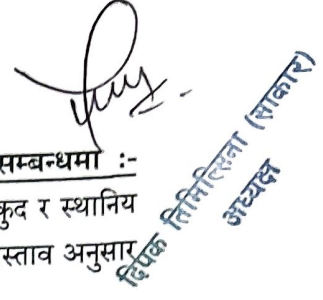 सम्बन्धमा :-
कुद र स्थानिय
स्ताव अनुसार
दिपक तिमिल्सिना (साकार)
अध्यक्ष